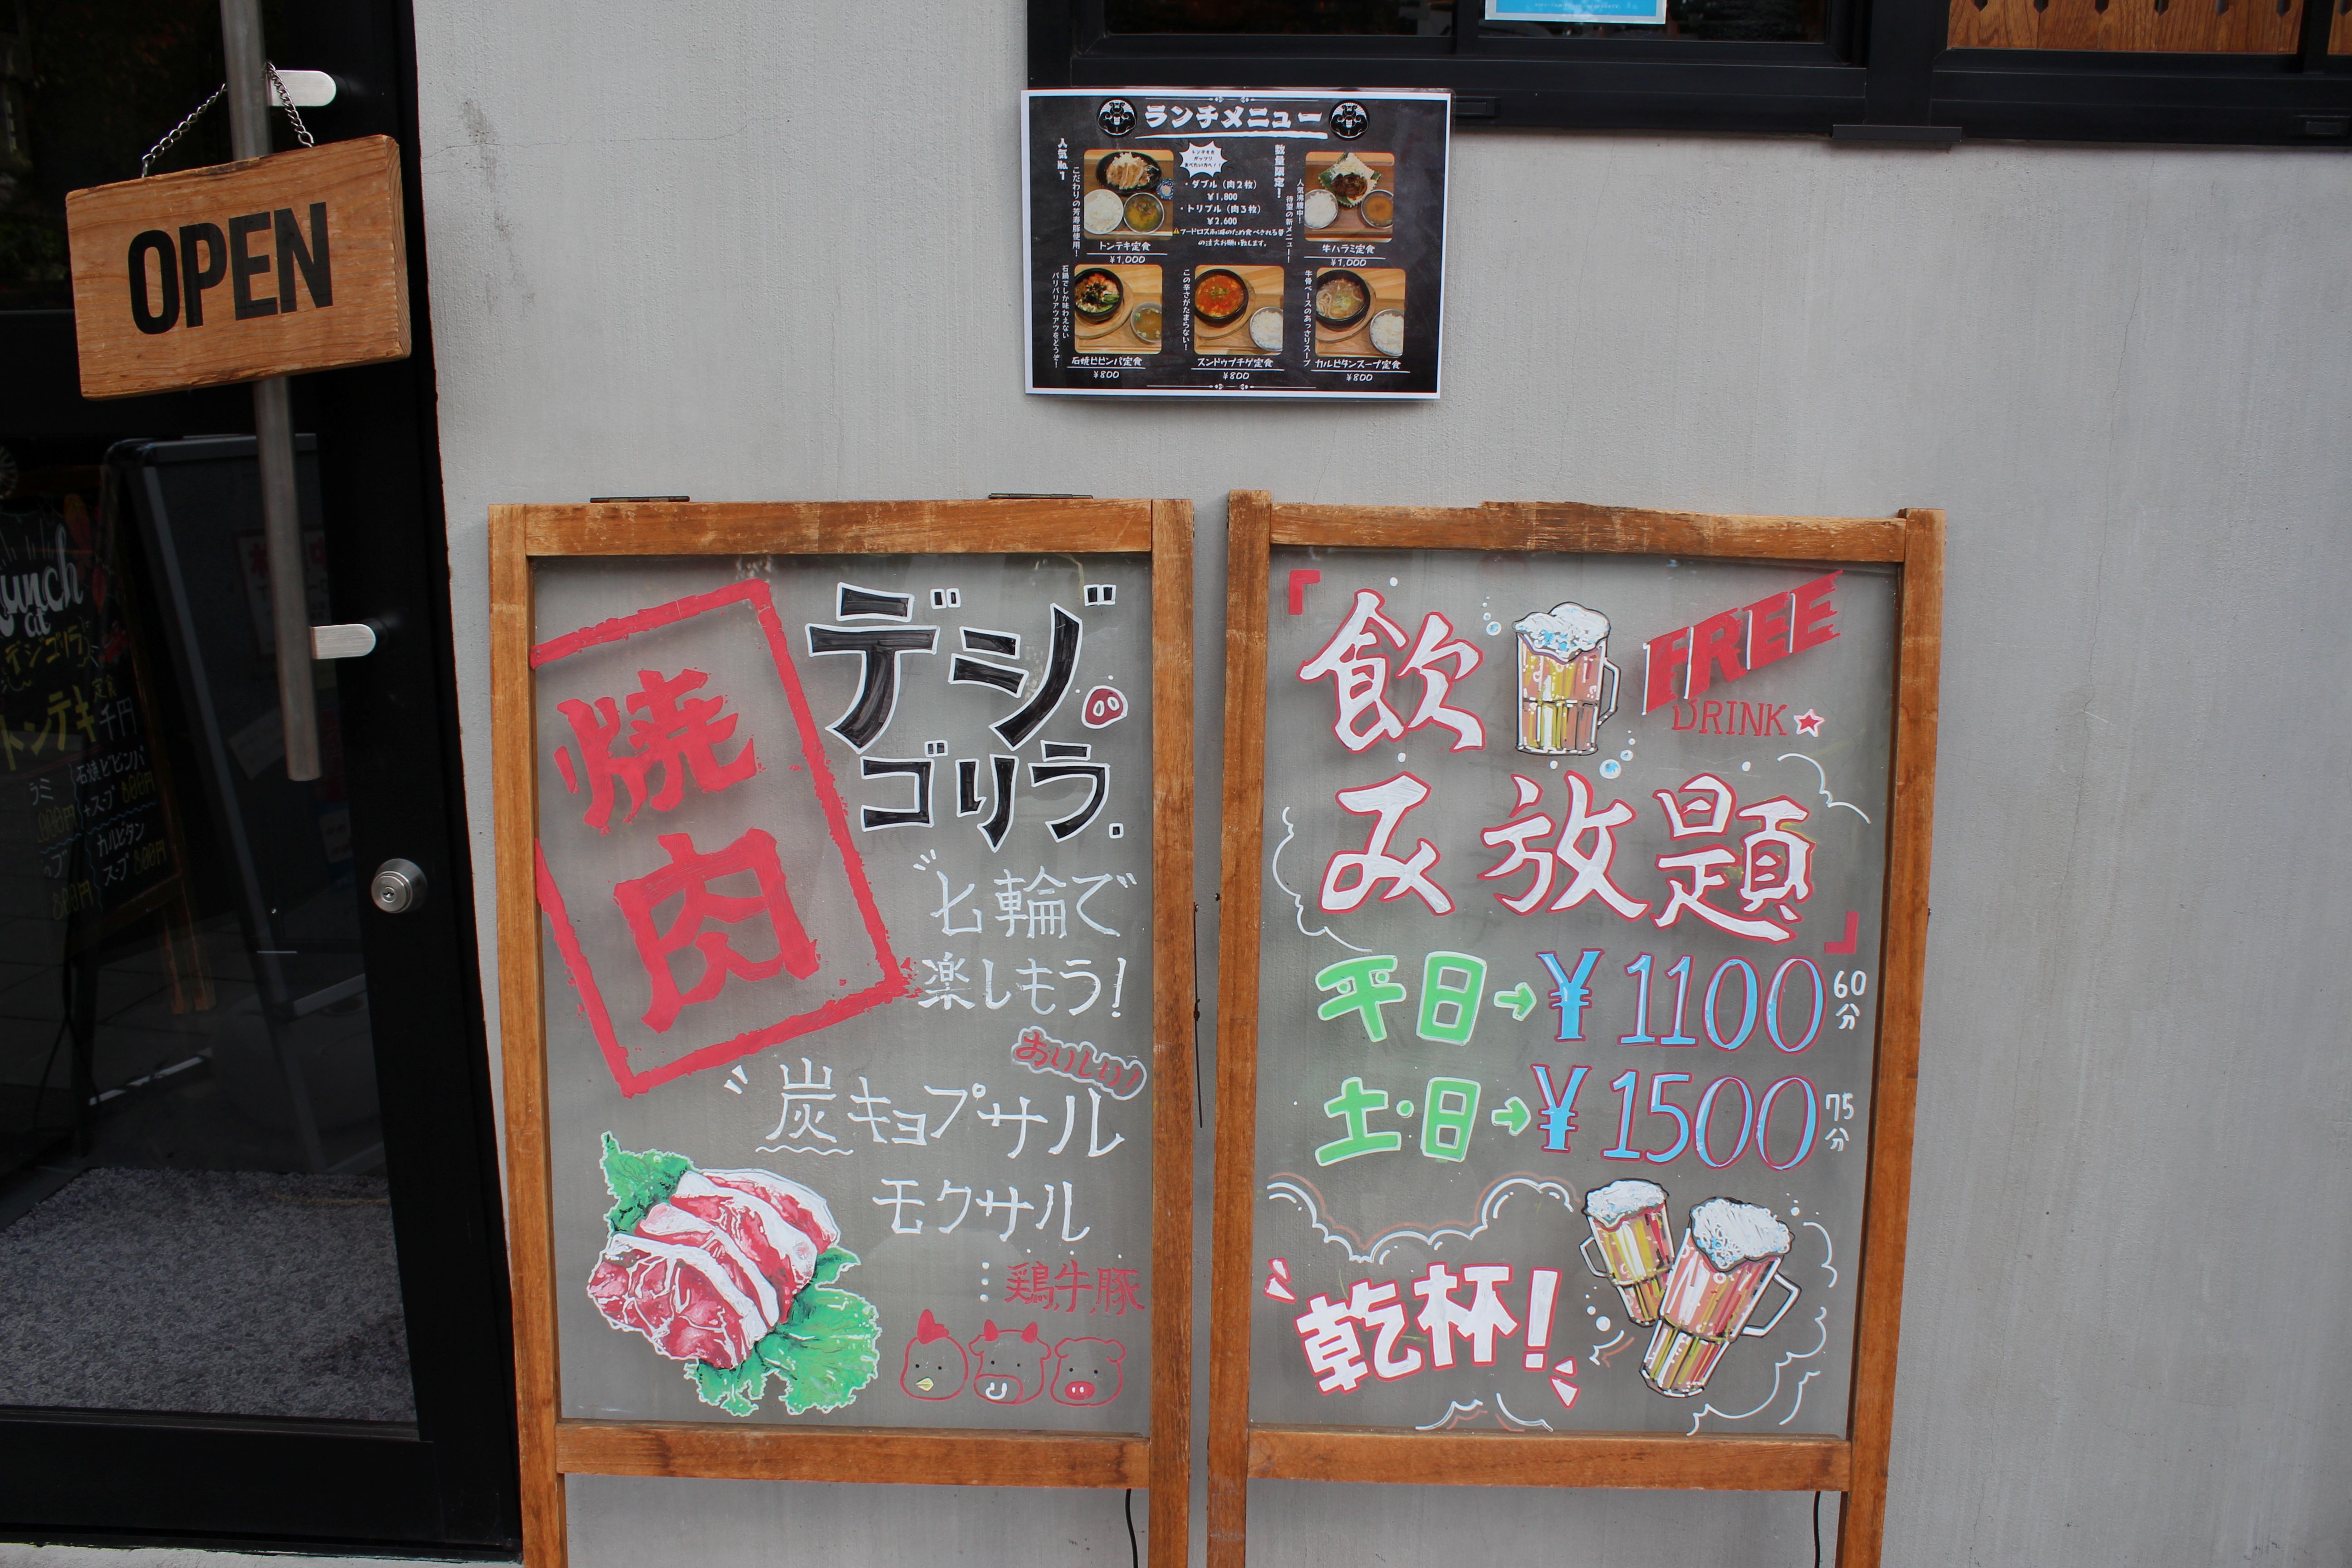 OPEN
ランチメニュー
人気No.1
こだわりの芳寿豚使用!
・ダブル(肉2枚)
¥1,800
・トリプル(肉3枚)
¥2,600
フードロス削減のため食べきれる量
の注文お願い致します。
数量限定!
人気沸騰中!
待望の新メニュー!
トンテキ定食
¥1,000
牛ハラミ定食
¥1,000
石鍋でしか味わえない
パリパリアツアツをどうぞ!
石焼ビビンバ定食
¥800
この辛さがたまらない!
スンドゥブチゲ定食
¥800
牛骨ベースのあっさりスープ
カルビタンスープ定食
¥800
焼肉
デジ
ゴリラ.
七輪で
楽しもう!
おいしい!
炭キョプサル
モクサル
鶏,牛,豚
「飲
FREE
DRINK
み放題」
平日→¥1100 60分
土・日→¥1500 75分
乾杯!
unch
at
デジゴリラ
トンテキ定食
千円
ラミ
石焼ビビンバ
+スープ 800円
カルビタン
スープ 800円
800円